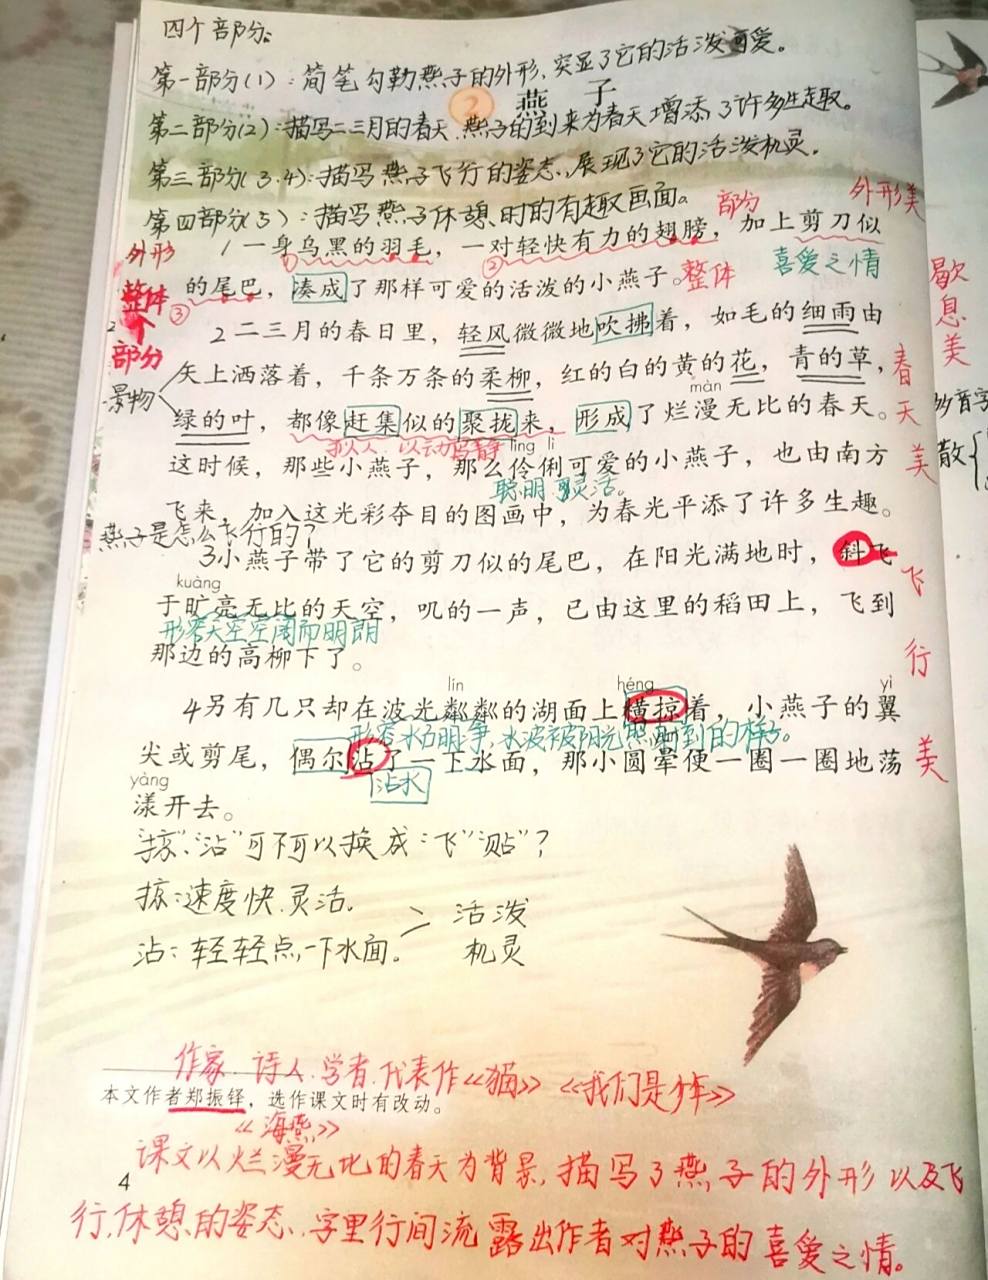 四个部分：
第一部分(1)：简笔勾勒燕子的外形，突显了它的活泼可爱。
2 燕子
第二部分(2)：描写二三月的春天，燕子的到来为春天增添了许多生趣。
第三部分(3.4)：描写燕子飞行的姿态，展现了它的活泼机灵。
第四部分(5)：描写燕子休憩时的有趣画面。
部分
外形美
外形
1 一身乌黑的羽毛，一对轻快有力的翅膀，加上剪刀似
① ②
喜爱之情
整体
个
部分
③
的尾巴，凑成了那样可爱的活泼的小燕子。整体
歇息美
2 二三月的春日里，轻风微微地吹拂着，如毛的细雨由
景物
矢上洒落着，千条万条的柔柳，红的白的黄的花，青的草，
春天美
màn
绿的叶，都像赶集似的聚拢来，形成了烂漫无比的春天。
拟人 以动写静
líng lì
多音字
散
这时候，那些小燕子，那么伶俐可爱的小燕子，也由南方
聪明 灵活。
飞来，加入这光彩夺目的图画中，为春光平添了许多生趣。
燕子是怎么飞行的？
3 小燕子带了它的剪刀似的尾巴，在阳光满地时，斜飞
飞行美
kuàng
于旷亮无比的天空，叽的一声，已由这里的稻田上，飞到
形容天空空阔而明朗
那边的高柳下了。
lín héng yì
4 另有几只却在波光粼粼的湖面上横掠着，小燕子的翼
形容水石明净，水波被阳光照耀到的样子。
尖或剪尾，偶尔沾了一下水面，那小圆晕便一圈一圈地荡
沾水
yàng
漾开去。
“掠”、“沾”可不可以换成：“飞”“贴”？
掠：速度快.灵活.
活泼
沾：轻轻点一下水面。
机灵
作家.诗人.学者.代表作《猫》《我们是少年》
本文作者郑振铎，选作课文时有改动。
《海燕》
课文以烂漫无比的春天为背景，描写了燕子的外形以及飞
4
行，休憩的姿态，字里行间流露出作者对燕子的喜爱之情。